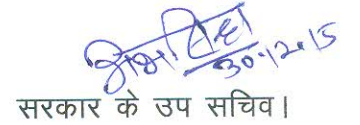 30.12.15
सरकार के उप सचिव।